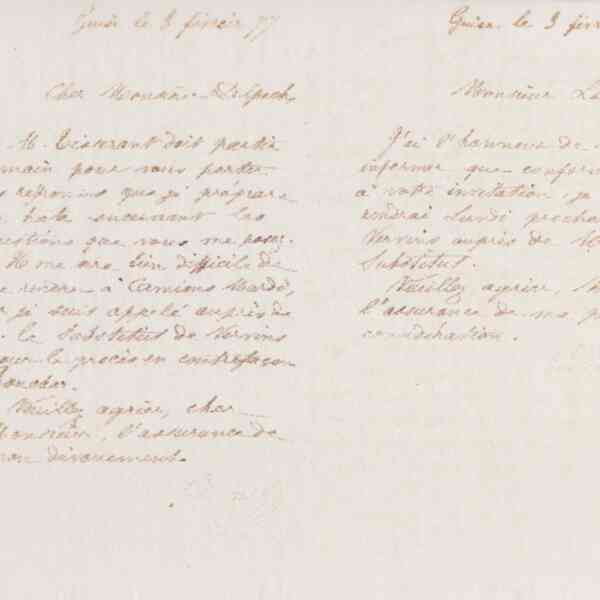 Guise le 3 février 77
Cher Monsieur Delpech,
M. Tisserant doit partir
demain pour vous porter
les réponses que je prépare
en hâte concernant les
questions que vous me posez.
Il me sera bien difficile de
me rendre à Amiens Mardi,
car je suis appelé auprès de
M. le Substitut de Vervins
pour le procès en contrefaçon
Veuillez agréer, cher
Monsieur, l'assurance de
mon dévouement.
Guise le 3 fév
Monsieur
J'ai l'honneur de
informer que conform
à votre invitation, je
rendrai Lundi procha
Vervins auprès de
Substitut.
Veuillez agréer,
l'assurance de ma
considération.